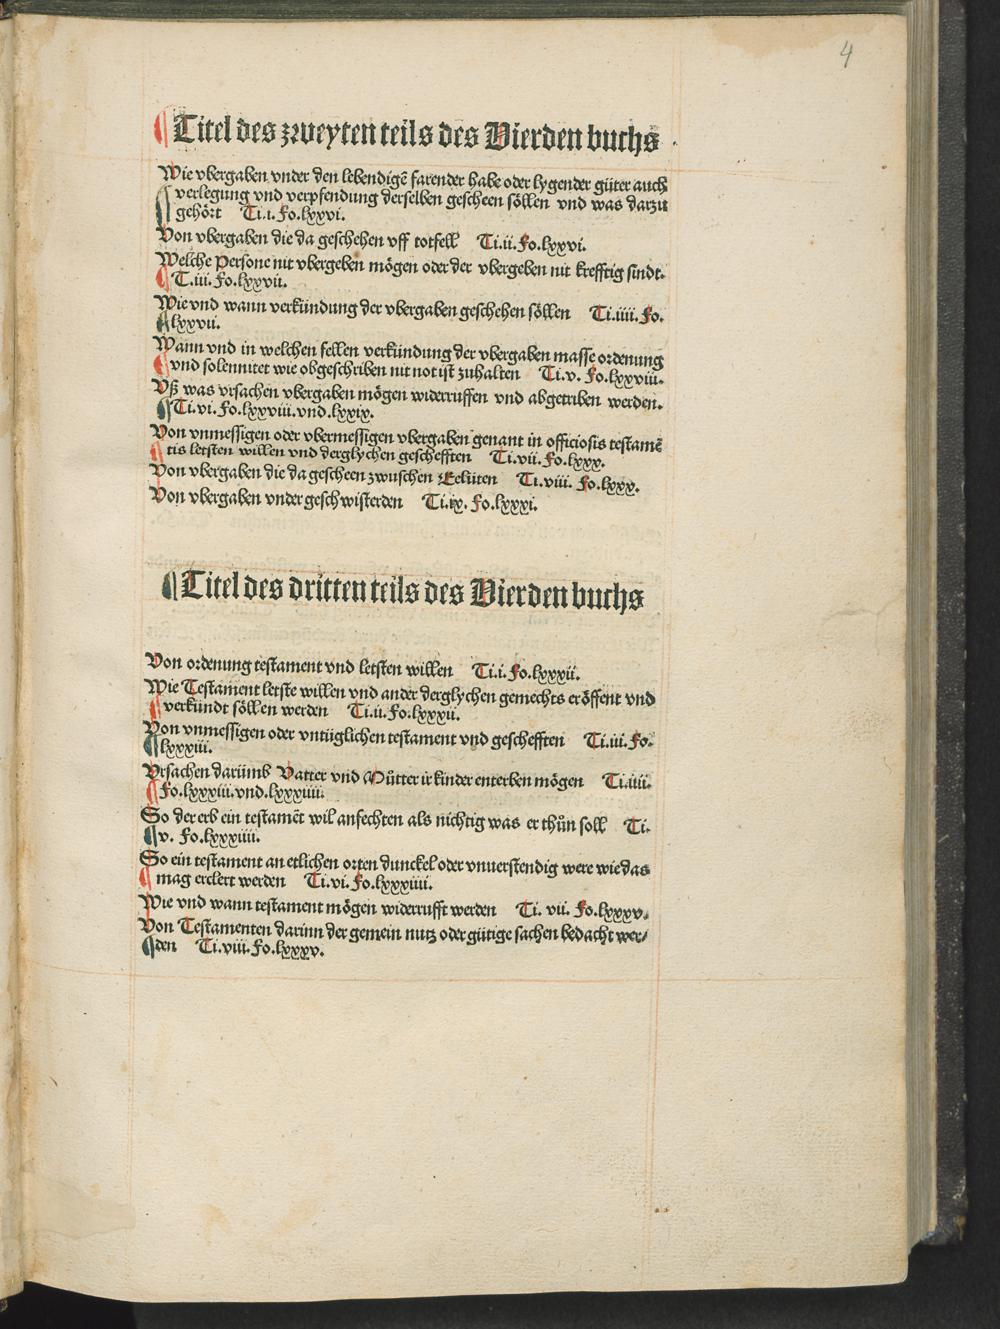 4
¶ Titel des zweyten teils des Vierden buchs
Wie vbergaben vnder den lebendigē farender habe oder lygender güter auch
verlegung vnd verpfendung derselben gescheen söllen vnd was darzu
gehört Ti.i. Fo.lxxvi.
Von vbergaben die da geschehen vff totfell Ti.ii. Fo.lxxvi.
Welche Persone nit vbergeben mögen oder der vbergeben nit krefftig sindt.
T.iii. Fo.lxxvii.
Wie vnd wann verkündung der vbergaben geschehen söllen Ti.iiii. Fo.
lxxvii.
Wann vnd in welchen fellen verkündung der vbergaben masse ordenung
vnd solennitet wie obgeschriben nit not ist zuhalten Ti.v. Fo.lxxviii.
Vß was vrsachen vbergaben mögen widerruffen vnd abgetriben werden.
Ti.vi. Fo.lxxviii.vnd.lxxix.
Von vnmessigen oder vbermessigen vbergaben genant in officiosis testamē
tis letsten willen vnd derglychen geschefften Ti.vii. Fo.lxxx.
Von vbergaben die da gescheen zwuschen Eelüten Ti.viii. Fo.lxxx.
Von vbergaben vnder geschwisterden Ti.ix. Fo.lxxxi.
¶ Titel des dritten teils des Vierden buchs
Von ordenung testament vnd letsten willen Ti.i. Fo.lxxxii.
Wie Testament letste willen vnd ander derglychen gemechts eröffent vnd
verkündt söllen werden Ti.ii. Fo.lxxxii.
Von vnmessigen oder vntüglichen testament vnd geschefften Ti.iii. Fo.
lxxxiii.
Vrsachen darümb Vatter vnd Můtter ir kinder enterben mögen Ti.iiii.
Fo.lxxxiii.vnd.lxxxiiii.
So der erb ein testamēt wil anfechten als nichtig was er thůn soll Ti.
v. Fo.lxxxiiii.
So ein testament an etlichen orten dunckel oder vnuerstendig were wie das
mag erclert werden Ti.vi. Fo.lxxxiiii.
Wie vnd wann testament mögen widerrufft werden Ti. vii. Fo.lxxxv.
Von Testamenten darinn der gemein nutz oder gütige sachen bedacht wer/
den Ti.viii. Fo.lxxxv.